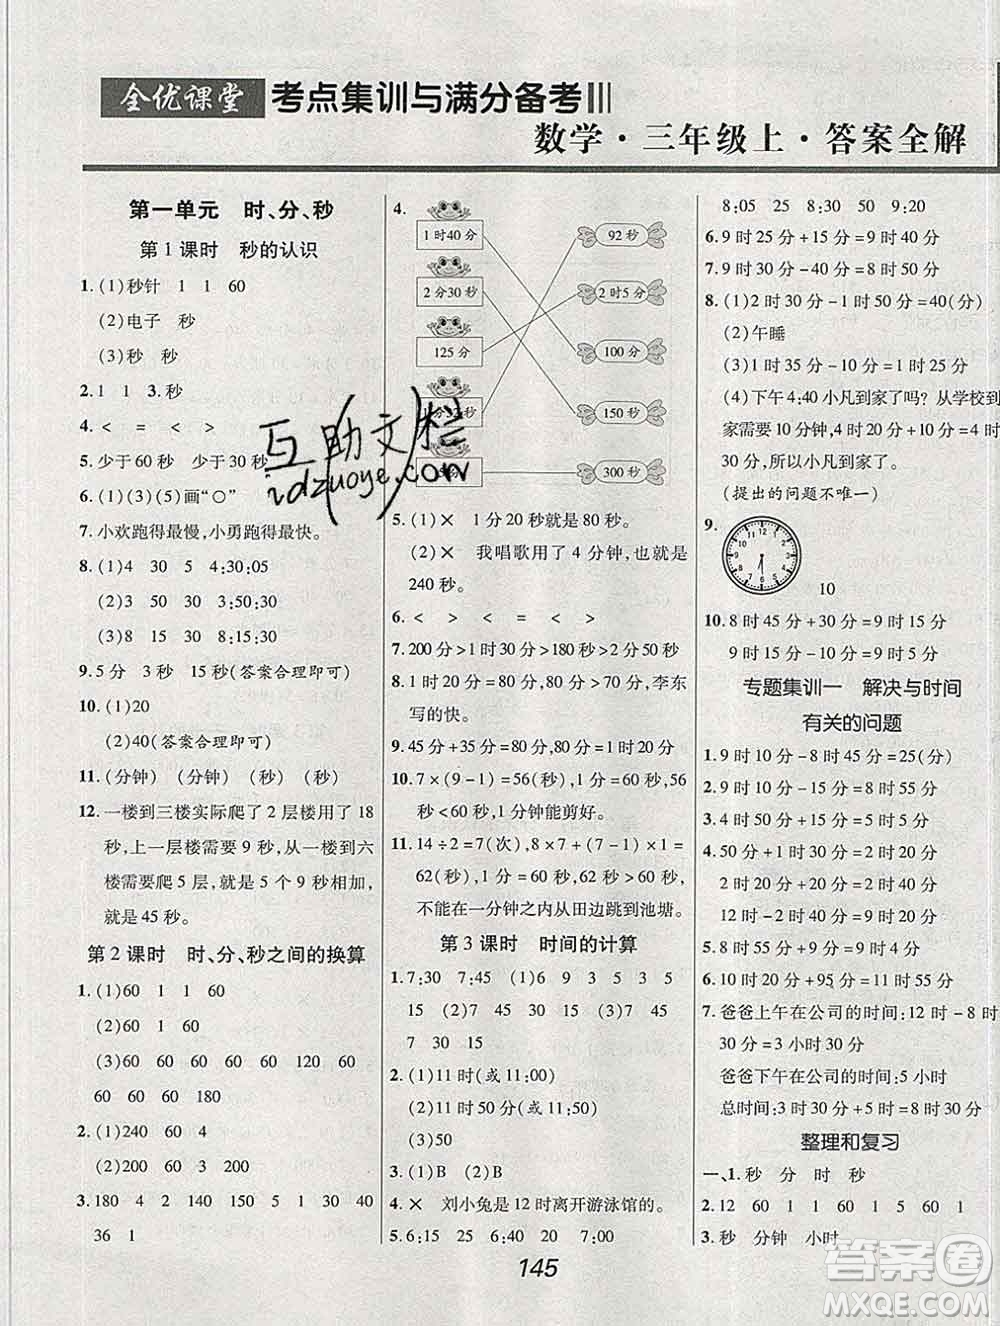 全优课堂 考点集训与满分备考
数学·三年级上·答案全解
第一单元 时、分、秒
第1课时 秒的认识
1.(1)秒针 1 1 60
(2)电子 秒
(3)秒 秒
2.1 1 3.秒
4.< = > <
5.少于60秒 少于30秒
6.(1)(3)(5)画“○”
7.小欢跑得最慢,小勇跑得最快。
8.(1)4 30 5 4:30:05
(2)3 50 30 3:50:30
(3)8 15 30 8:15:30
9.5分 3秒 15秒(答案合理即可)
10.(1)20
(2)40(答案合理即可)
11.(分钟) (分钟) (秒) (秒)
12.一楼到三楼实际爬了2层楼用了18
秒,上一层楼需要9秒,从一楼到六
楼需要爬5层,就是5个9秒相加,
就是45秒。
第2课时 时、分、秒之间的换算
1.(1)60 1 1 60
(2)60 1 60
(3)60 60 60 60 120 60
60 60 60 180
2.(1)240 60 4
(2)200 60 3 200
3.180 4 2 140 150 5 1 30 40
36 1
4.
1时40分 92秒
2分30秒 2时5分
125分 100分
150秒
300秒
互助文栏
idzuoye.com
5.(1)× 1分20秒就是80秒。
(2)× 我唱歌用了4分钟,也就是
240秒。
6.< > < = < >
7.200分>1时30分>180秒>2分50秒
8.1时20分=80分,80分>70分,李东
写的快。
9.45分+35分=80分,80分<90分
10.7×(9-1)=56(秒),1分=60秒,56
秒<60秒,1分钟能剪好。
11.14÷2=7(次),8×7+(7-1)×1=
62(秒),1分=60秒,62秒>60秒
不能在一分钟之内从田边跳到池塘。
第3课时 时间的计算
1.7:30 7:45 (1)6 9 3 5 3 5
15 (2)7 9 15 (3)7 7 45
7 30 15
2.(1)11时(或11:00)
(2)11时50分(或11:50)
(3)50
3.(1)B (2)B
4.× 刘小兔是12时离开游泳馆的。
5.6:15 40 20 7:00
8:05 25 8:30 50 9:20
6.9时25分+15分=9时40分
7.9时30分+50分=10时20分
8.(1)2时30分-1时50分=40(分)
(2)午睡
(3)1时35分-10分=1时25分
(4)下午4:40小凡到家了吗?从学校到
家需要10分钟,4时20分+10分=4时
30分,所以小凡到家了。
(提出的问题不唯一)
9.
12 1 2 3 4 5 6 7 8 9 10 11
10
10.8时45分+1时=9时45分
9时15分-10分=9时5分
专题集训一 解决与时间
有关的问题
1.9时10分-8时45分=25(分)
2.9时20分-15分=9时5分
3.4时50分+15分=5时5分
4.50分+1时30分=2时20分
2时20分-8分=2时12分
2时12分-4分=2时8分
5.8时55分+9分=9时4分
6.10时20分+95分=11时55分
7.爸爸上午在公司的时间:12时-8时
30分=3小时30分
爸爸下午在公司的时间:5小时
总时间:3时30分+5时=8时30分
整理和复习
一、1.秒 分 时 秒
2.12 60 1 1 60 60 1
3.秒 分钟 小时
145
答案圈
MXQE.COM